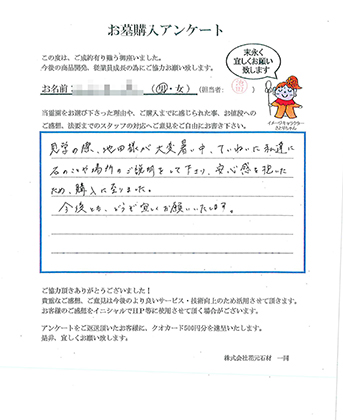 お墓購入アンケート
この度は、ご成約有り難う御座いました。
今後の商品開発、従業員成長の為にご協力お願い致します。
末永く
宜しくお願い
致します
お名前
(男・女)
(担当者:
当霊園をお選び下さった理由や、ご購入までに感じられた事、お値段への
ご感想、法要までのスタッフの対応へご意見をご自由にお書き下さい。
イメージキャラクター
さとりちゃん
見学の際、池田様が大変暑い中、ていねいに私達に
石のことや場所のご説明をして下さり、安心感を抱いた
ため、購入に至りました。
今後とも、どうぞ宜しくお願いいたします。
ご協力頂きありがとうございました!
貴重なご感想、ご意見は今後のより良いサービス・技術向上のため活用させて頂きます。
お客様のご感想をイニシャルでHP等に使用させて頂く場合がございます。
アンケートをご返送頂いたお客様に、クオカード500円分を進呈いたします。
是非、宜しくお願い致します。
株式会社花元石材 一同